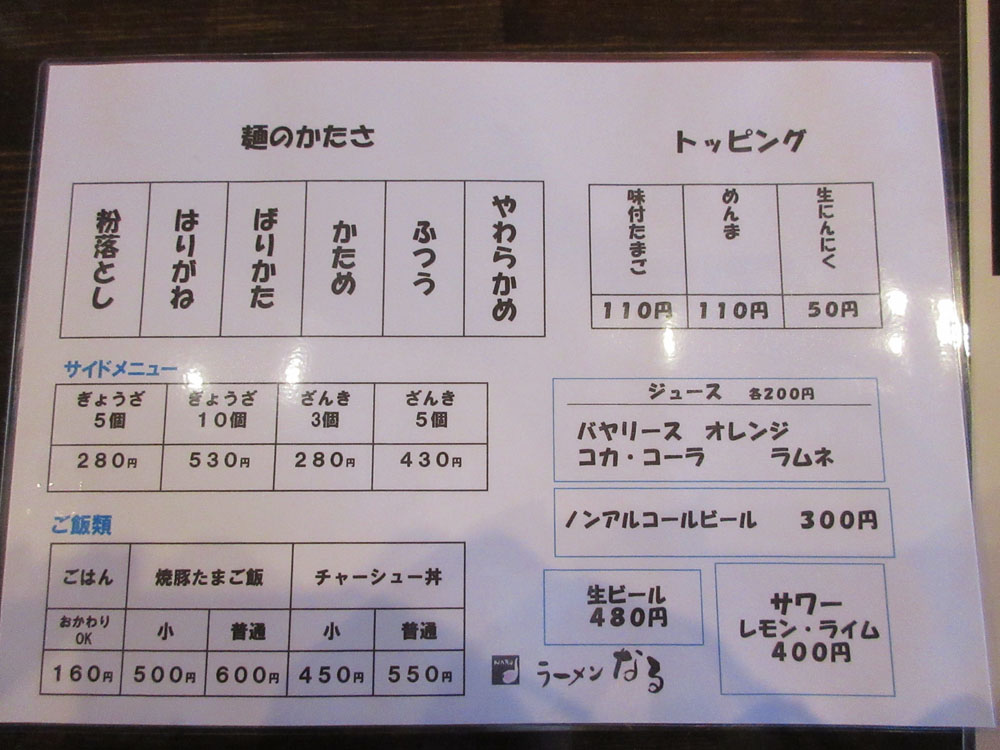 麺のかたさ
粉落とし
はりがね
ばりかた
かため
ふつう
やわらかめ
トッピング
味付たまご
めんま
生にんにく
110円
110円
50円
サイドメニュー
ぎょうざ
5個
ぎょうざ
10個
ざんき
3個
ざんき
5個
280円
530円
280円
430円
ご飯類
ごはん
焼豚たまご飯
チャーシュー丼
おかわり
OK
小
普通
小
普通
160円
500円
600円
450円
550円
ジュース 各200円
バヤリース オレンジ
コカ・コーラ ラムネ
ノンアルコールビール 300円
生ビール
480円
サワー
レモン・ライム
400円
ラーメン なる